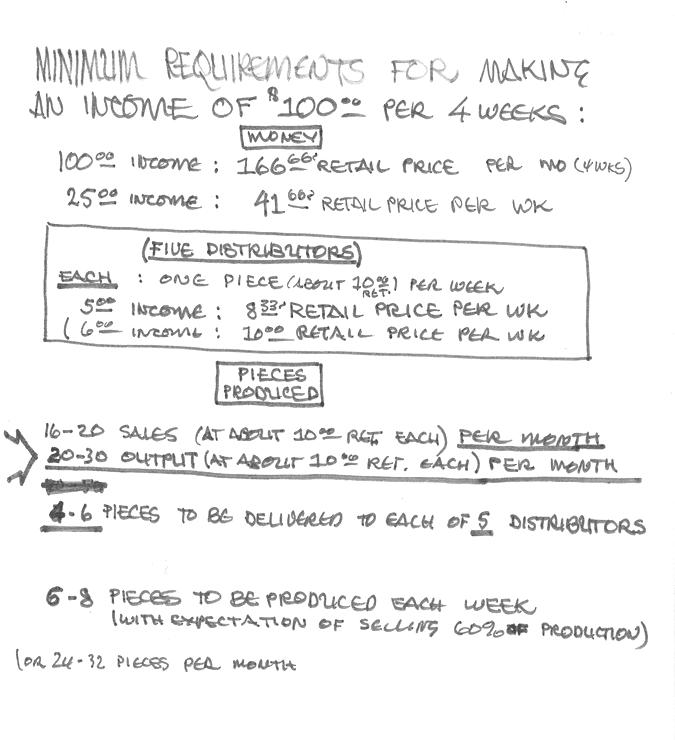 MINIMUM REQUIREMENTS FOR MAKING
AN INCOME OF $100.00 PER 4 WEEKS:
MONEY
100.00 INCOME: 166.66 RETAIL PRICE PER MO (4 WKS)
25.00 INCOME: 41.66 RETAIL PRICE PER WK
(FIVE DISTRIBUTORS)
EACH: ONE PIECE (ABOUT 10.00 RET.) PER WEEK
5.00 INCOME: 8.33 RETAIL PRICE PER WK
(6.00 INCOME: 10.00 RETAIL PRICE PER WK
PIECES
PRODUCED
16-20 SALES (AT ABOUT 10.00 RET. EACH) PER MONTH
20-30 OUTPUT (AT ABOUT 10.00 RET. EACH) PER MONTH
4-6 PIECES TO BE DELIVERED TO EACH OF 5 DISTRIBUTORS
6-8 PIECES TO BE PRODUCED EACH WEEK
(WITH EXPECTATION OF SELLING 60% OF PRODUCTION)
(OR 24-32 PIECES PER MONTH